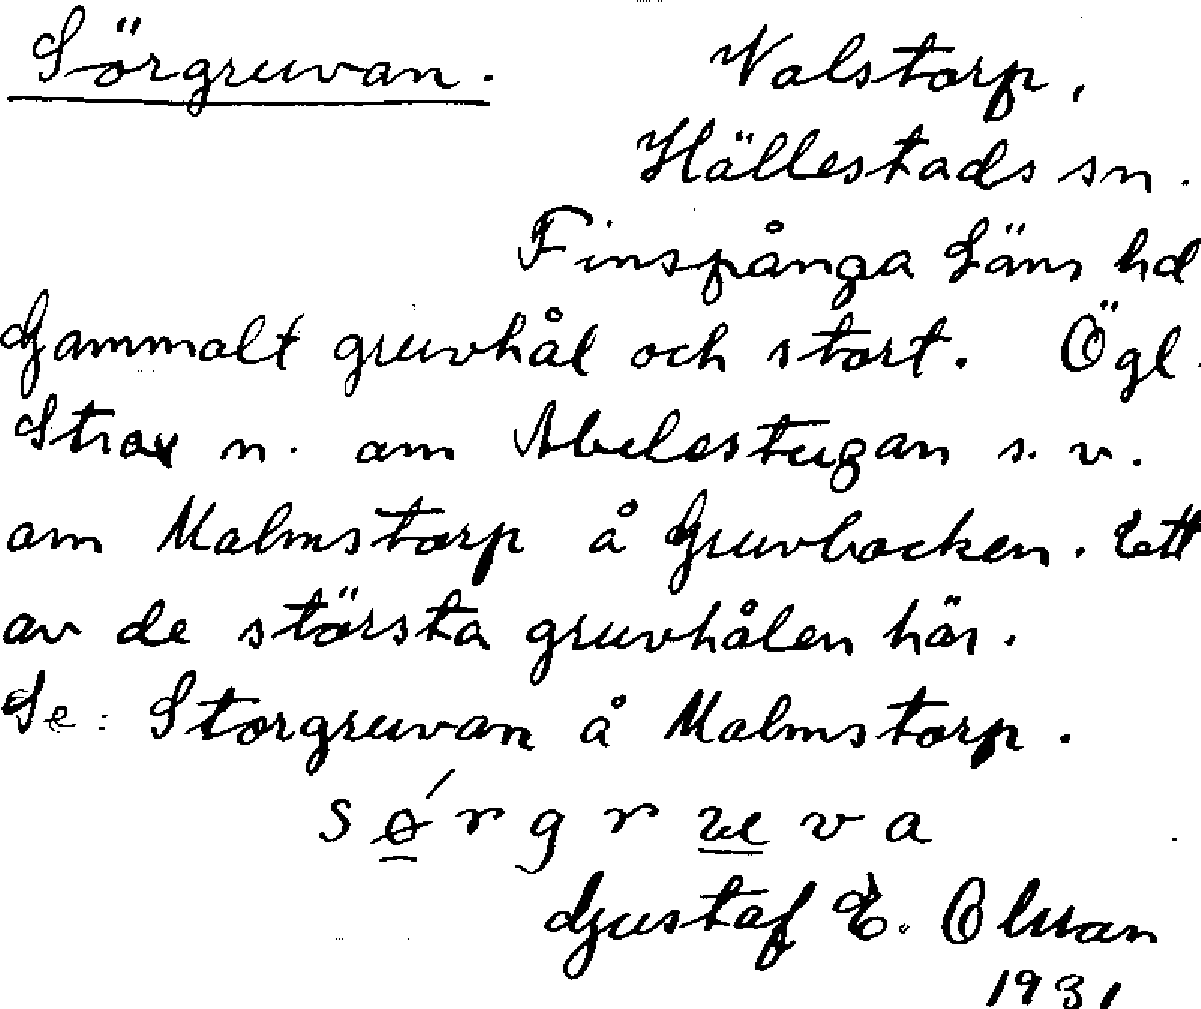 Sörgruvan. Valstorp,
Hällestads sn.
Finspånga Läns hd
Gammalt gruvhål och stort. Ögl.
Strax n. om Abelestugan s. v.
om Malmstorp å Gruvbacken. Ett
av de största gruvhålen här.
Se: Storgruvan å Malmstorp.
sǿrgruva
Gustaf E. Olsson
1931